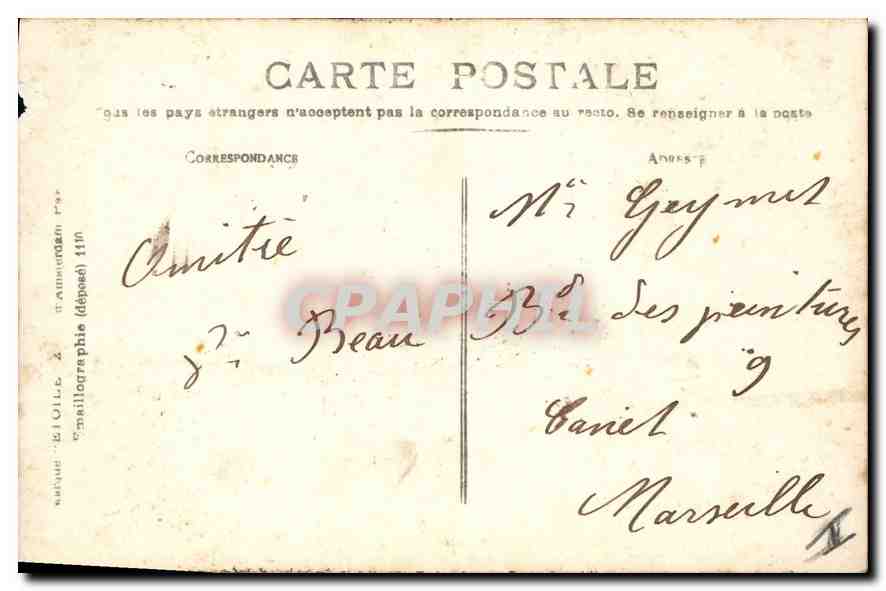 CARTE POSTALE
Tous les pays étrangers n'acceptent pas la correspondance au recto. Se renseigner à la poste
CORRESPONDANCE
ADRESSE
Amitié
Beau
Geymet
Bd des peintures
9
Canet
Marseille
"ETOILE"
Emaillographie (déposé) 1110
CPAPHIL